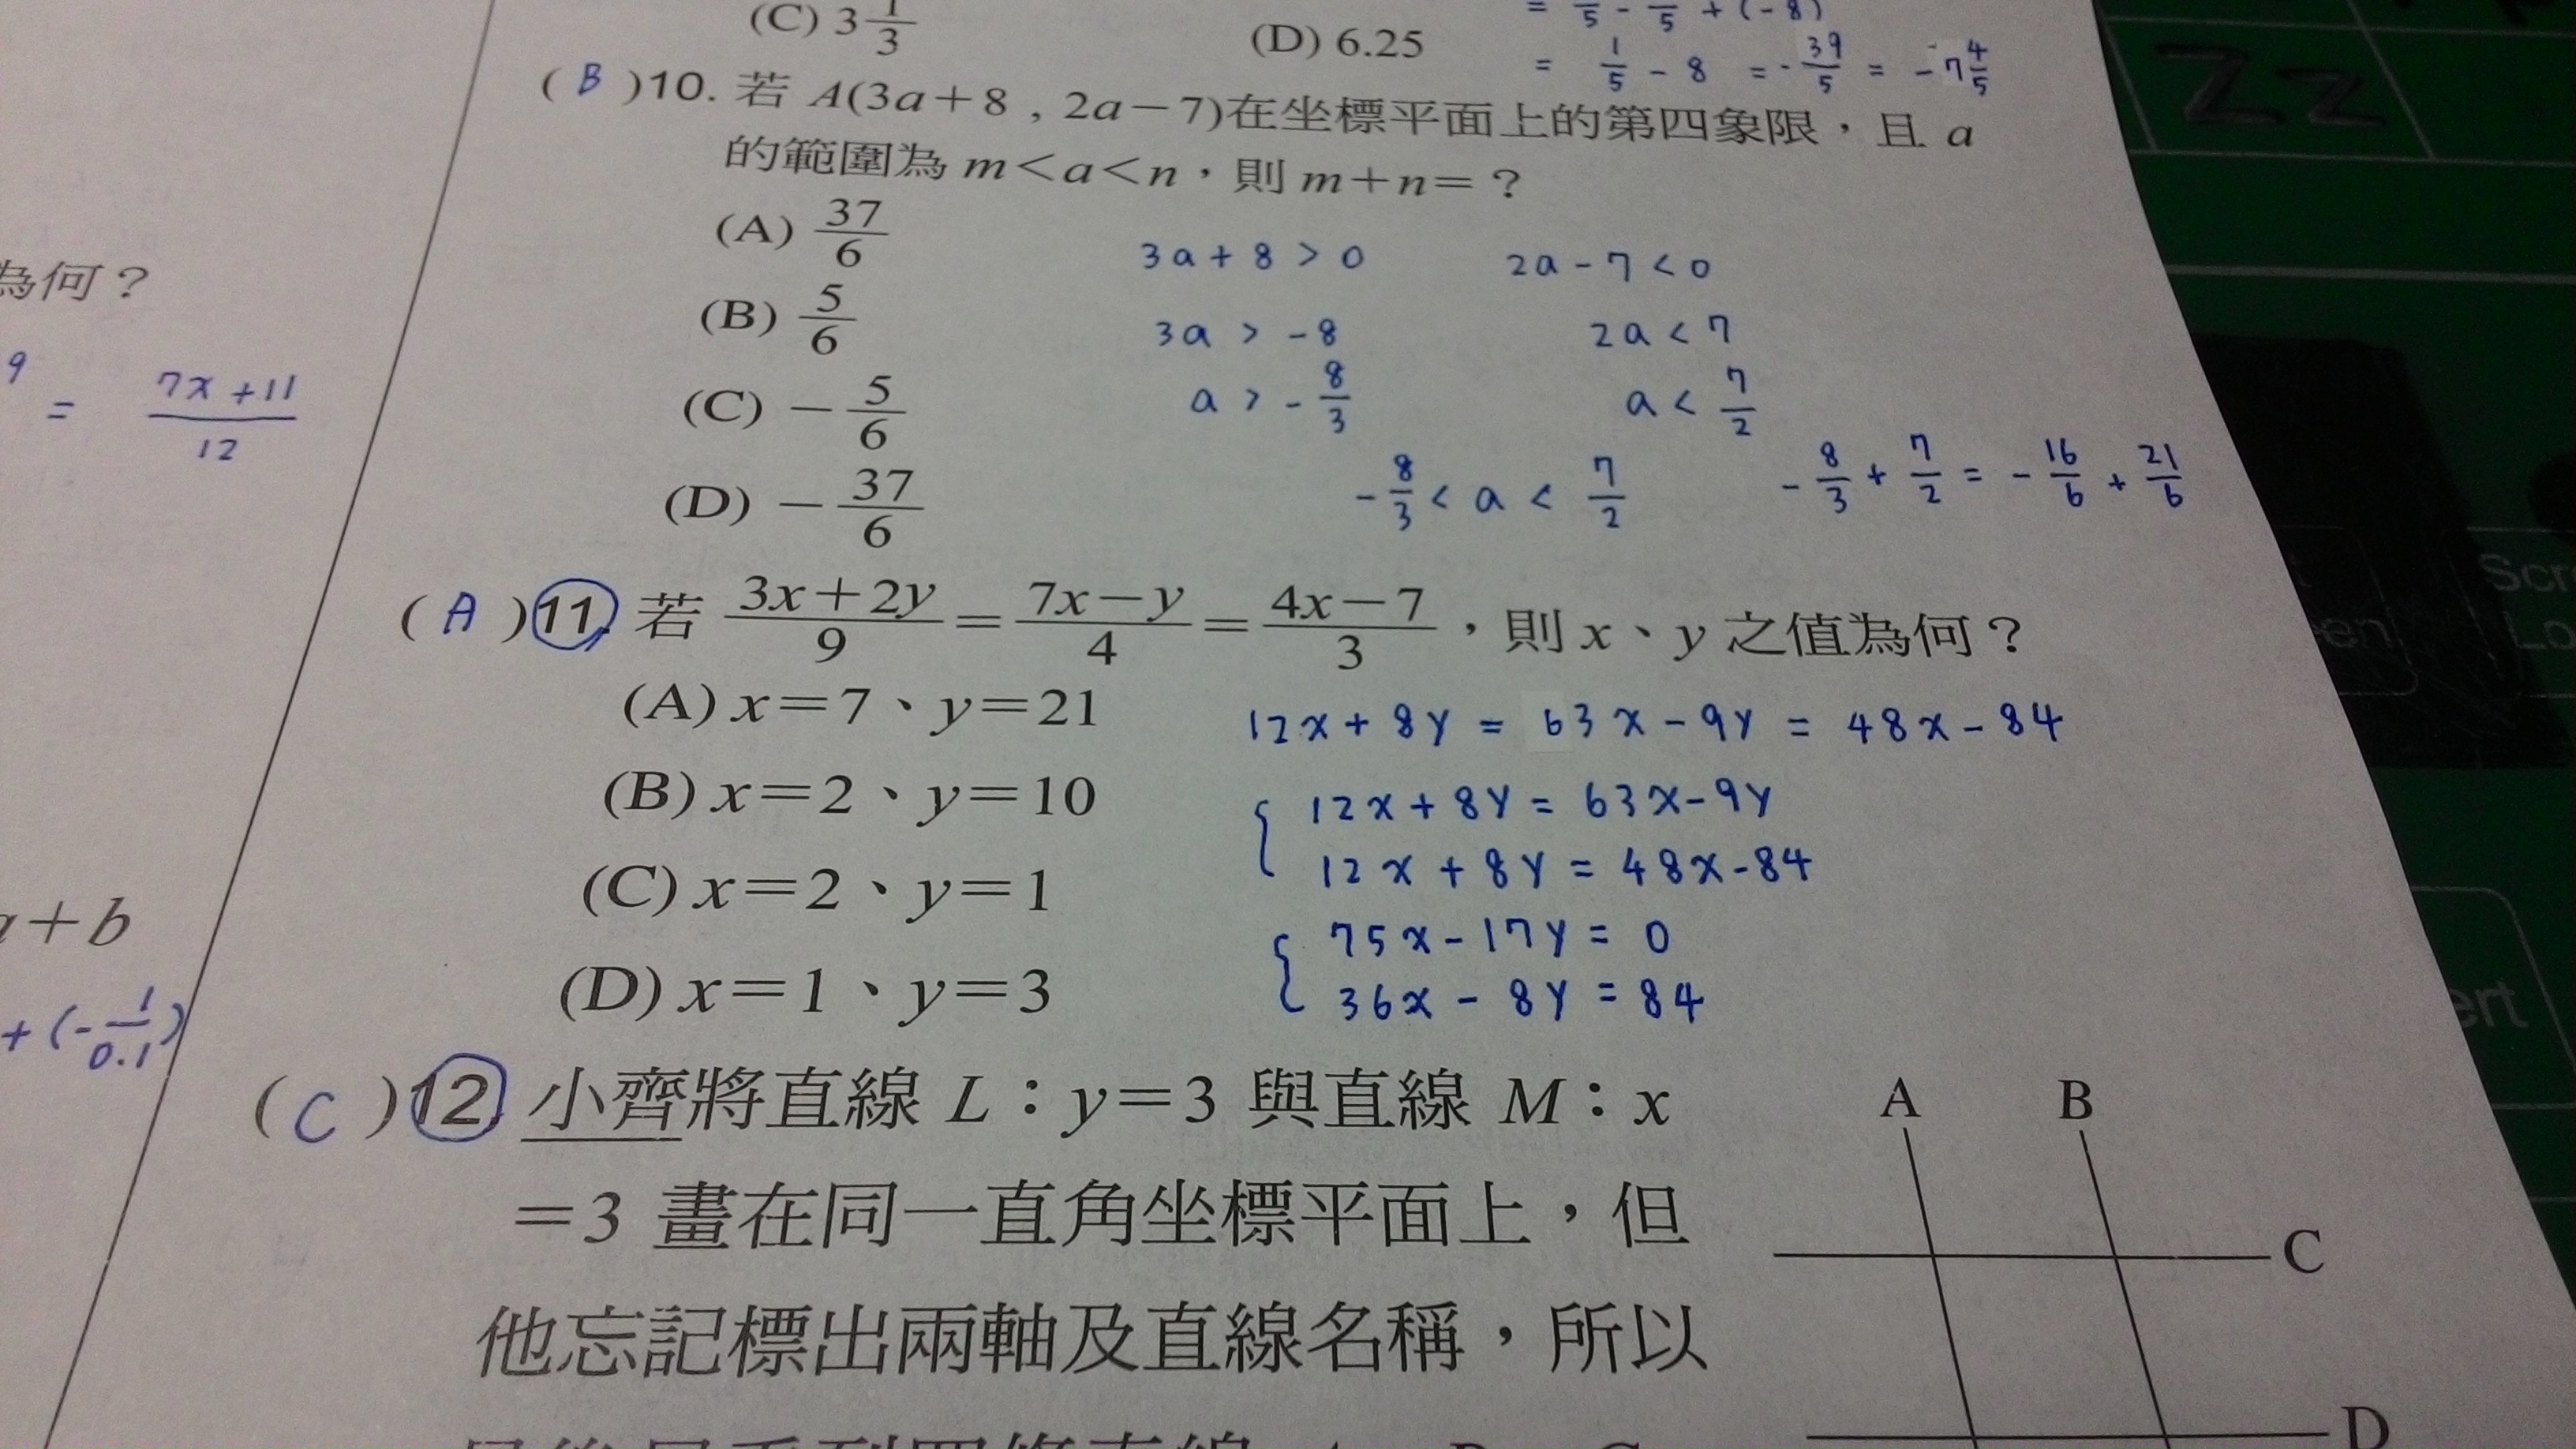 (C) 3 1/3
(D) 6.25
= 1/5 - 8 = - 39/5 = - 7 4/5
( B )10. 若 A(3a+8 , 2a-7)在坐標平面上的第四象限，且 a
的範圍為 m<a<n，則 m+n=？
(A) 37/6
(B) 5/6
(C) - 5/6
(D) - 37/6
3a + 8 > 0
3a > -8
a > - 8/3
2a - 7 < 0
2a < 7
a < 7/2
- 8/3 < a < 7/2
- 8/3 + 7/2 = - 16/6 + 21/6
( A )11. 若 (3x+2y)/9 = (7x-y)/4 = (4x-7)/3，則 x、y 之值為何？
(A) x=7、y=21
(B) x=2、y=10
(C) x=2、y=1
(D) x=1、y=3
12x + 8y = 63x - 9y = 48x - 84
12x + 8y = 63x - 9y
12x + 8y = 48x - 84
75x - 17y = 0
36x - 8y = 84
( C )12. 小齊將直線 L：y=3 與直線 M：x
=3 畫在同一直角坐標平面上，但
他忘記標出兩軸及直線名稱，所以
A
B
C
D
為何？
9
= (7x+11)/12
+b
+ (- 1/0.1)
Zz